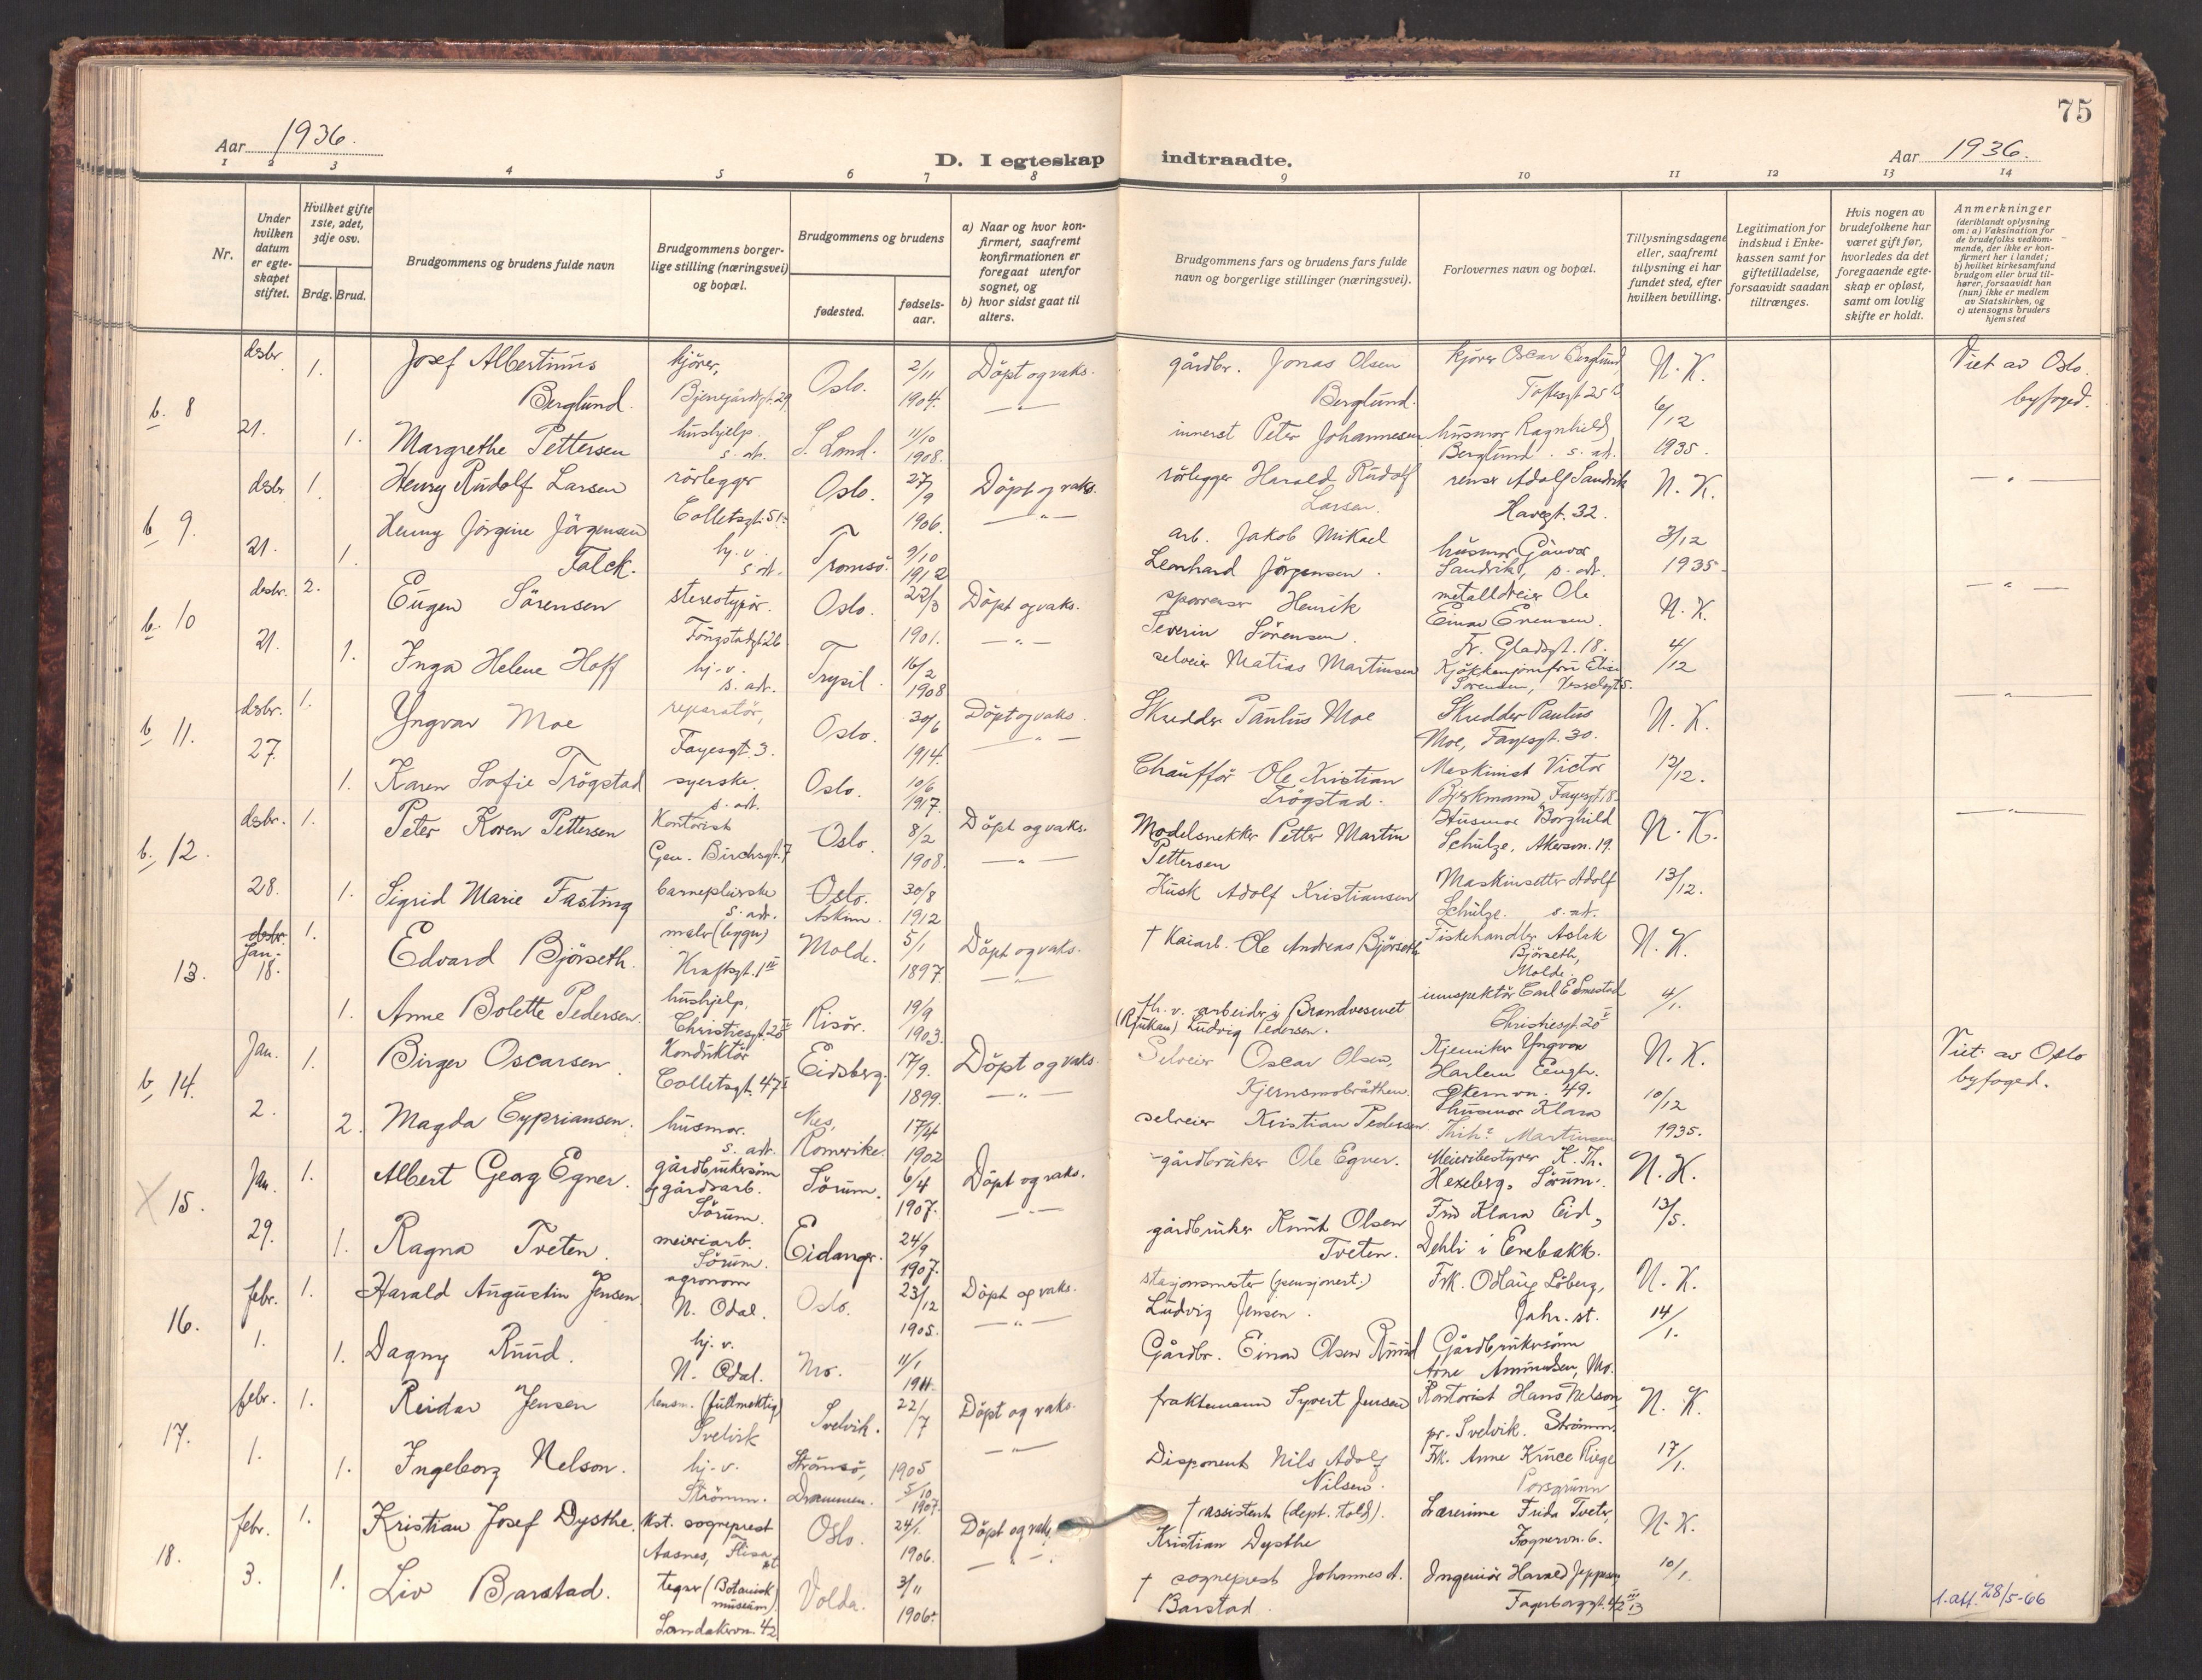 75
Aar 1936.
D. I egteskap indtraadte.
Aar 1936.
1 2 3 4 5 6 7 8 9 10 11 12 13 14
Nr.
Under hvilken datum er egteskapet stiftet.
Hvilket gifte 1ste, 2det, 3dje osv.
Brdg. Brud.
Brudgommens og brudens fulde navn
Brudgommens borgerlige stilling (næringsvei) og bopæl.
Brudgommens og brudens
fødested.
fødselsaar.
a) Naar og hvor konfirmert, saafremt konfirmationen er foregaat utenfor sognet, og
b) hvor sidst gaat til alters.
Brudgommens fars og brudens fars fulde navn og borgerlige stillinger (næringsvei).
Forlovernes navn og bopæl.
Tillysningsdagene eller, saafremt tillysning ei har fundet sted, efter hvilken bevilling.
Legitimation for indskud i Enkekassen samt for giftetilladelse, forsaavidt saadan tiltrænges.
Hvis nogen av brudefolkene har været gift før, hvorledes da det foregaaende egteskap er opløst, samt om lovlig skifte er holdt.
Anmerkninger
(deriblandt oplysning om: a) Vaksination for de brudefolks vedkommende, der ikke er konfirmert her i landet; b) hvilket kirkesamfund brudgom eller brud tilhører, forsaavidt han (hun) ikke er medlem av Statskirken, og c) utensogns bruders hjemsted
b. 8 desbr. 21. 1. Josef Albertinus Berglund. kjører, Bjerregårdsgt. 29 Oslo. 2/11 1904. Döpt og vaks. gårdbr. Jonas Olsen Berglund. kjører Oscar Berglund Toftesgt 25 N. K. Viet av Oslo. byfoged.
1. Margrethe Pettersen hushjelp. s. st. S. Land. 11/10 1908. — " — innerst Peter Johannesen husmor Ragnhild Berglund. s. st. 6/12 1935.
b 9. desbr. 21. 1. Henry Rudolf Larsen rörlegger Colletsgt. 51 Oslo. 27/9 1906. Döpt og vaks. rörlegger Harald Rudolf Larsen. renser Adolf Sandvik Havegt. 32. N. K. — " —
1. Henny Jörgine Jörgensen Falck. hj. v. s. st. Tromsö. 9/10 1912 — " — arb. Jakob Mikael Leonhard Jörgensen. husmor Gunvor Sandvik, s. st. 3/12 1935.
b. 10 desbr. 21. 2. Eugen Sörensen stereotypör. Oslo. 22/3 1901. Döpt og vaks. sporrenser Henrik Severin Sörensen. metalldreier Ole Einar Evensen. Fr. Gladsgt. 18. N. K. — " —
1. Inga Helene Hoff hj. v. s. st. Trysil. 16/2 1908 — " — selveier Matias Martinsen Kjøkkenjomfru Elise Sörensen, Vesselsgt 5. 4/12
b 11. desbr. 27. 1. Yngvar Moe reparatör, Fayesgt. 3. Oslo. 30/6 1914. Döpt og vaks. Skredder Paulus Moe Skredder Paulus Moe, Fayesgt. 30. N. K. — " —
1. Karen Sofie Trögstad syerske. s. st. Oslo. 10/6 1917. — " — Chaufför Ole Kristian Trögstad. Maskinist Victor Bjerkmann, Fayesgt. 18. 12/12.
b. 12. desbr. 28. 1. Peter Koren Pettersen Kontorist Gen. Birchsgt. 7 Oslo. 8/2 1908. Döpt og vaks. Modelsnekker Petter Martin Pettersen Husmor Borghild Schulze. Akersvn. 19. N. K. — " —
1. Sigrid Marie Fasting barnepleierske s. st. Oslo. Askim. 30/8 1912 — " — Kusk Adolf Kristiansen Maskinsetter Adolf Schulze. s. st. 13/12.
13. desbr. Jan. 18. 1. Edvard Björseth. maler (bygn.) Kraftsgt. 1 III Molde. 5/1 1897. Döpt og vaks. † Kaiarb. Ole Andreas Björseth Fiskehandler Aslak Björseth, Molde. N. K.
1. Anne Bolette Pedersen. hushjelp, Christiesgt. 20 Risör. 19/9 1903. — " — fh. v. arbeider i Brandvesenet (Rjukan) Ludvig Pedersen. innspektör Carl E Smestad Christiesgt. 20 V 4/1.
b 14. Jan. 2. 1. Birger Oscarsen. Konduktör Colletsgt. 47 I Eidsberg. 17/9. 1899. Döpt og vaks. Selveier Oscar Olsen, Kjernsmobråthen. Kjemiker Yngvar Harlem Eengh. Økernvn. 49. N. K. Viet av Oslo byfoged.
2. Magda Cypriansen. husmor. s. st. Nes, Romerike. 17/4 1902 — " — selveier Kristian Pedersen husmor Klara Martinsen 10/12 1935.
15. Jan. 29. 1. Albert Georg Egner. gårdbrukersønn og gårdsarb. Sörum. Sörum. 6/4 1907. Döpt og vaks. gårdbruker Ole Egner. Meieribestyrer K. Th. Hexeberg. Sörum. N. K.
1. Ragna Tveten. meieriarb. Sörum. Eidanger. 24/9 1907. — " — gårdbruker Knut Olsen Tveten. Fru Klara Eid, Dehli i Enebakk. 13/5.
16. febr. 1. 1. Harald Augustin Jensen agronom N. Odal. Oslo. 23/12 1905. Döpt og vaks. stasjonsmester (pensjonert.) Ludvig Jensen. Frk. Odlaug Löberg, Jahr. st. N. K.
1. Dagny Ruud. hj. v. N. Odal. Mo. 11/1 1911. — " — Gårdbr. Einar Olsen Ruud Gårdbrukersønn Arne Amundsen, Mo. 14/1.
17. febr. 1. 1. Reidar Jensen lensm. (fullmektig) Svelvik Svelvik. 22/7 1905 Döpt og vaks. fraktemann Syvert Jensen Kontorist Hans Nelson, pr. Svelvik. Strömm. N. K.
1. Ingeborg Nelson. hj. v. Strömm. Strömsö, Drammen. 5/10 1907. — " — Disponent Nils Adolf Nilsen. Frk. Anne Kruce Riege Porsgrunn 17/1.
18. febr. 3. 1. Kristian Josef Dysthe. kst. sogneprest Aasnes, Flisa st Oslo. 24/1. 1906. Döpt og vaks. † assistent (dept. Kold). Kristian Dysthe Lærerinne Frida Tveter, Frognervn. 6. N. K.
1. Liv Barstad. tegner (Botanisk museum) Sandakervn. 42 Volda. 3/11 1906. — " — † sogneprest Johannes A. Barstad. Ingeniör Harald Jeppesen, Fagerborggt. 42 III 10/1. 1. att. 28/5-66